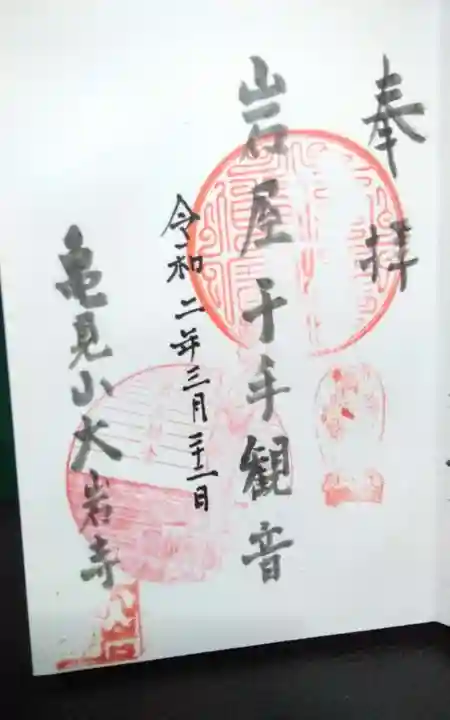 奉拝
岩屋千手観音
令和二年三月二十一日
亀見山大岩寺